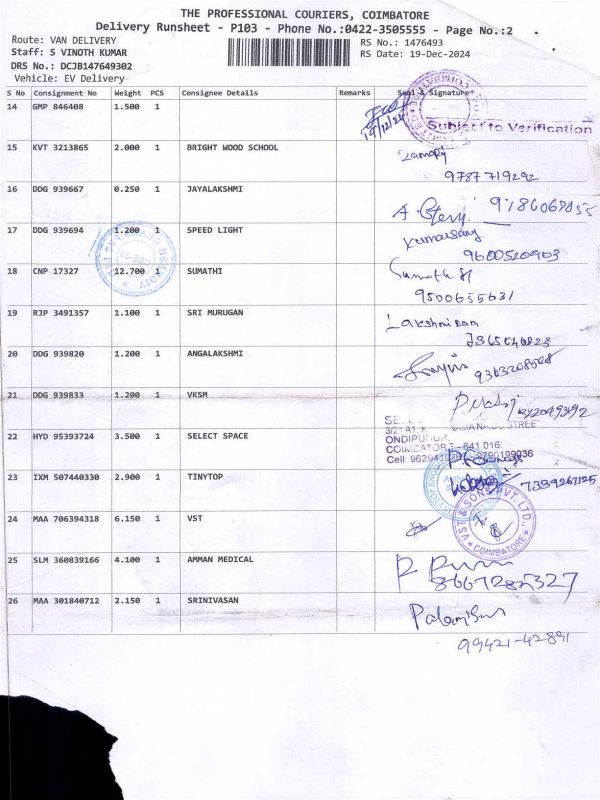 THE PROFESSIONAL COURIERS, COIMBATORE
Delivery Runsheet - P103 - Phone No.:0422-3505555 - Page No.:2
Route: VAN DELIVERY
RS No.: 1476493
Staff: S VINOTH KUMAR
RS Date: 19-Dec-2024
DRS No.: DCJB147649302
Vehicle: EV Delivery
S No Consignment No Weight PCS Consignee Details Remarks Seal & Signature
14 GMP 846408 1.500 1
19/12/24
Subject to Verification
15 KVT 3213865 2.000 1 BRIGHT WOOD SCHOOL
9787719292
16 DDG 939667 0.250 1 JAYALAKSHMI
9786068055
17 DDG 939694 1.200 1 SPEED LIGHT
Kumarsamy
9600520903
18 CNP 17327 12.700 1 SUMATHI
Sumathi
9500655631
19 RJP 3491357 1.100 1 SRI MURUGAN
Lakshmi Ram
20 DDG 939820 1.200 1 ANGALAKSHMI
9363208508
21 DDG 939833 1.200 1 VKSM
22 HYD 95393724 3.500 1 SELECT SPACE
STREET
ONDIPUDUR,
COIMBATORE - 641 016.
Cell: 8790199036
23 IXM 507440330 2.900 1 TINYTOP
7339267125
24 MAA 706394318 6.150 1 VST
VST & SONS PVT. LTD.,
COIMBATORE
25 SLM 360839166 4.100 1 AMMAN MEDICAL
8667285327
26 MAA 301840712 2.150 1 SRINIVASAN
99421-42891